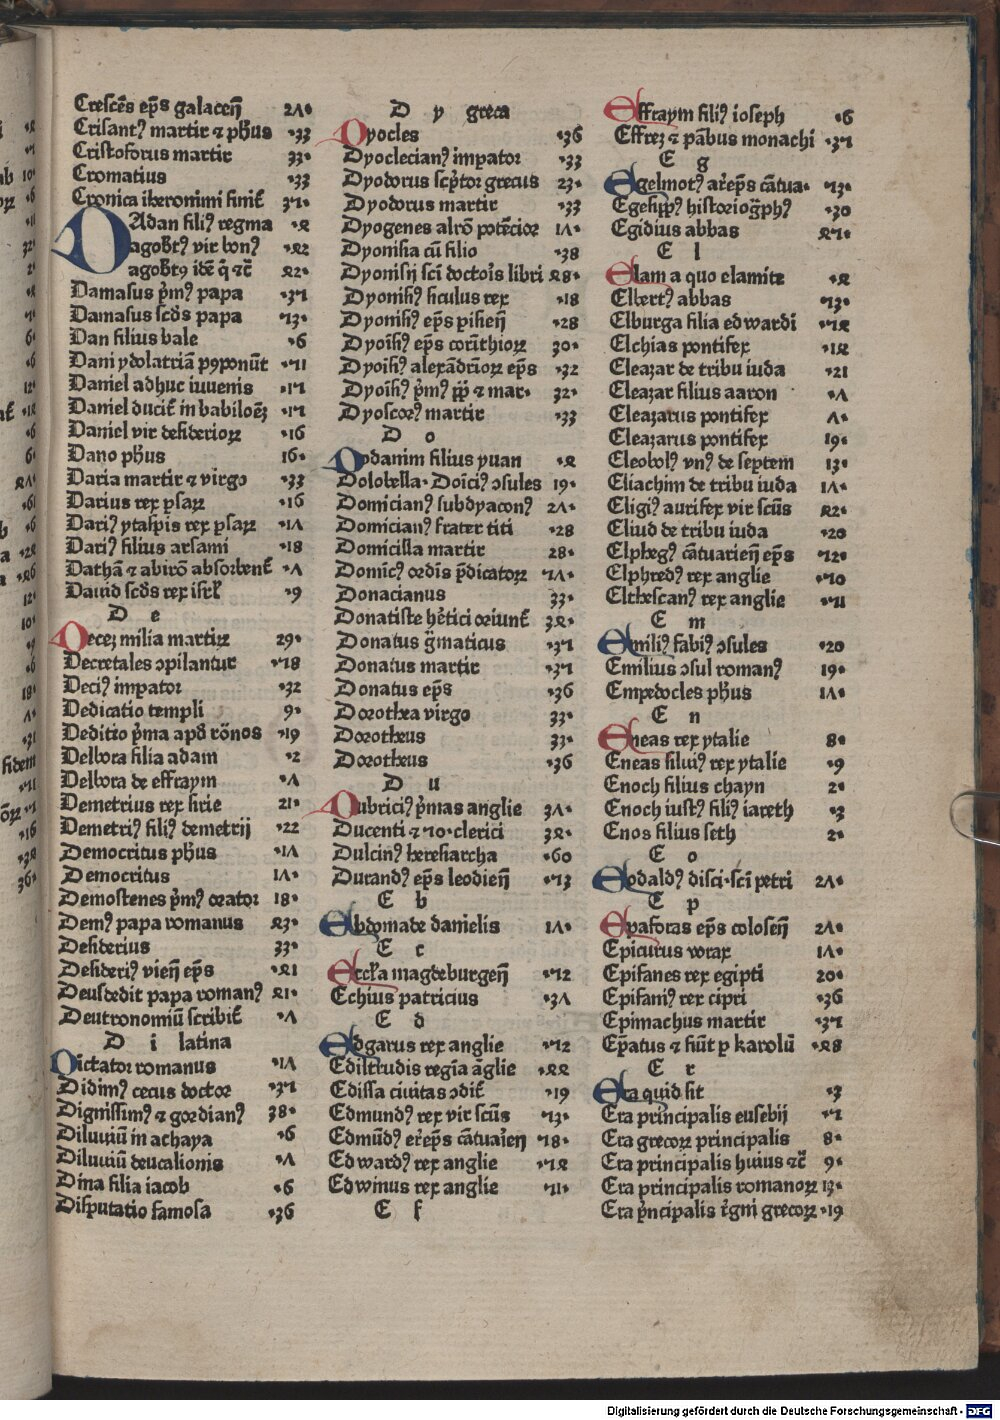 Crescẽs ep̃s galaceñ 2Λ•
Crisantꝰ martir ⁊ ph̃us •33
Cristoforus martir 33•
Cromatius •33
Cronica iheronimi finit̃ 31•
DAdan filiꝰ regma •ꝛ
agob̃tꝰ vir bonꝰ •ꝛ2
agob̃tꝰ idẽ q̃ ⁊c̃ ꝛ2•
Damasus p̃mꝰ papa •31
Damasus sc̃ds papa •13•
Dan filius bale •6
Dani ydolatriã pꝰponũt •11
Daniel adhuc iuuenis •11
Daniel ducit̃ in babiloẽȝ •11
Daniel vir desiderioꝝ •16
Dano ph̃us 16•
Daria martir ⁊ virgo •33
Darius rex ꝑsaꝝ •16
Dariꝰ ytaspis rex ꝑsaꝝ •1Λ
Dariꝰ filius arsami •18
Dathã ⁊ abirõ absorbent̃ •Λ
Dauid sc̃ds rex isrl̃ •9
D e
Deceȝ milia martiꝝ 29•
Decretales ↄpilantur •18
Deciꝰ imꝑator •32
Dedicatio templi 9•
Deditio p̃ma apd̃ rõnos •19
Delbora filia adam •2
Delbora de effraym •Λ
Demetrius rex sirie 21•
Demetriꝰ filiꝰ demetrij •22
Democritus ph̃us •1Λ
Democritus 1Λ•
Demostenes p̃mꝰ orator 18•
Demꝰ papa romanus ꝛ3•
Desiderius 33•
Desideriꝰ vieñ ep̃s •ꝛ1
Deusdedit papa romanꝰ ꝛ1•
Deutronomiũ scribit̃ •Λ
D i latina
Dictator romanus •1Λ
Didimꝰ cecus doctor •31
Dignissimꝰ ⁊ gordianꝰ 38•
Diluuiũ in achaya •6
Diluuiũ deucalionis •Λ
Dina filia iacob •6
Disputatio famosa •36
D y greca
Dyocles •36
Dyoclecianꝰ imꝑator •33
Dyodorus sc̃ptor grecus 23•
Dyodorus martir •33
Dyogenes alrõ potẽcior 1Λ•
Dyonisia cũ filio •38
Dyonisij sc̃i doctor̃s libri ꝛ8•
Dyonisiꝰ siculus rex •18
Dyonisiꝰ ep̃s ꝑisieñ •28
Dyoĩsiꝰ ep̃s corĩthioꝝ 30•
Dyoĩsiꝰ alexãdrioꝝ ep̃s •32
Dyoĩsiꝰ p̃mꝰ ꝑp̃ ⁊ mar• 32•
Dyoscorꝰ martir •33
D o
Dodanim filius yuan •ꝛ
Dolobella•Doĩciꝰ ↄsules 19•
Domicianꝰ subdyaconꝰ 2Λ•
Domicianꝰ frater titi •28
Domicilla martir 28•
Domĩcꝰ ordĩs p̃dicatoꝝ •1Λ•
Donacianus 33•
Donatiste hẽtici oriunt̃ 3ꝛ•
Donatus g̃maticus •31
Donatus martir •31
Donatus ep̃s •36
Dorothea virgo 33•
Dorotheus 33•
Dorotheus •36
D u
Dubriciꝰ p̃mas anglie 3Λ•
Ducenti ⁊ 10•clerici 3ꝛ•
Dulcinꝰ heresiarcha •60
Durandꝰ ep̃s leodieñ •13
E b
Ebdomade danielis 1Λ•
E c
Eccl̃a magdeburgeñ •12
Echius patricius •3Λ
E d
Edgarus rex anglie •12
Ediltrudis regĩa ãglie •ꝛꝛ
Edissa ciuitas ↄdit̃ •19
Edmundꝰ rex vir sc̃us •13•
Edmũdꝰ er̃ep̃s cãtuar̃ieñ •18•
Edwardꝰ rex anglie •1ꝛ
Edwinus rex anglie •11•
E f
Effraym filiꝰ ioseph •6
Effreȝ ⁊ pãbus monachi •31
E g
Egelmotꝰ ar̃ep̃s cãtua• •13•
Egesipꝑꝰ historiog̃phꝰ •30
Egidius abbas ꝛ1•
E l
Elam a quo elamite •ꝛ
Elbertꝰ abbas •13•
Elburga filia edwardi •1ꝛ
Elchias pontifex •1ꝛ
Eleazar de tribu iuda •21
Eleazar filius aaron •Λ
Eleazarus pontifex Λ•
Eleazarus pontifex 19•
Eleobolꝰ vnꝰ de septem 13•
Eliachim de tribu iuda 1Λ•
Eligiꝰ aurifex vir sc̃us ꝛ2•
Eliud de tribu iuda •20
Elphegꝰ cãtuarieñ ep̃s •12•
Elphredꝰ rex anglie •10
Elthescanꝰ rex anglie •11
E m
Emiliꝰ fabiꝰ ↄsules •20
Emilius ↄsul romanꝰ 19•
Empedocles ph̃us 1Λ•
E n
Eneas rex ytalie 8•
Eneas siluiꝰ rex ytalie •9
Enoch filius chayn 2•
Enoch iustꝰ filiꝰ iareth •3
Enos filius seth 2•
E o
Eodaldꝰ disci•sc̃i petri 2Λ•
E p
Epaforas ep̃s coloseñ 2Λ•
Epicurus vorax 1Λ•
Epifanes rex egipti 20•
Epifaniꝰ rex cipri •36
Epimachus martir •31
Ep̃atus ⁊ fiũt ꝑ karolũ •ꝛ8
E r
Era quid sit •3
Era principalis eusebij •1
Era grecoꝝ principalis 8•
Era principalis huius ⁊c̃ 9•
Era principalis romanoꝝ 13•
Era p̃ncipalis r̃gni grecoꝝ •19
Digitalisierung gefördert durch die Deutsche Forschungsgemeinschaft - DFG